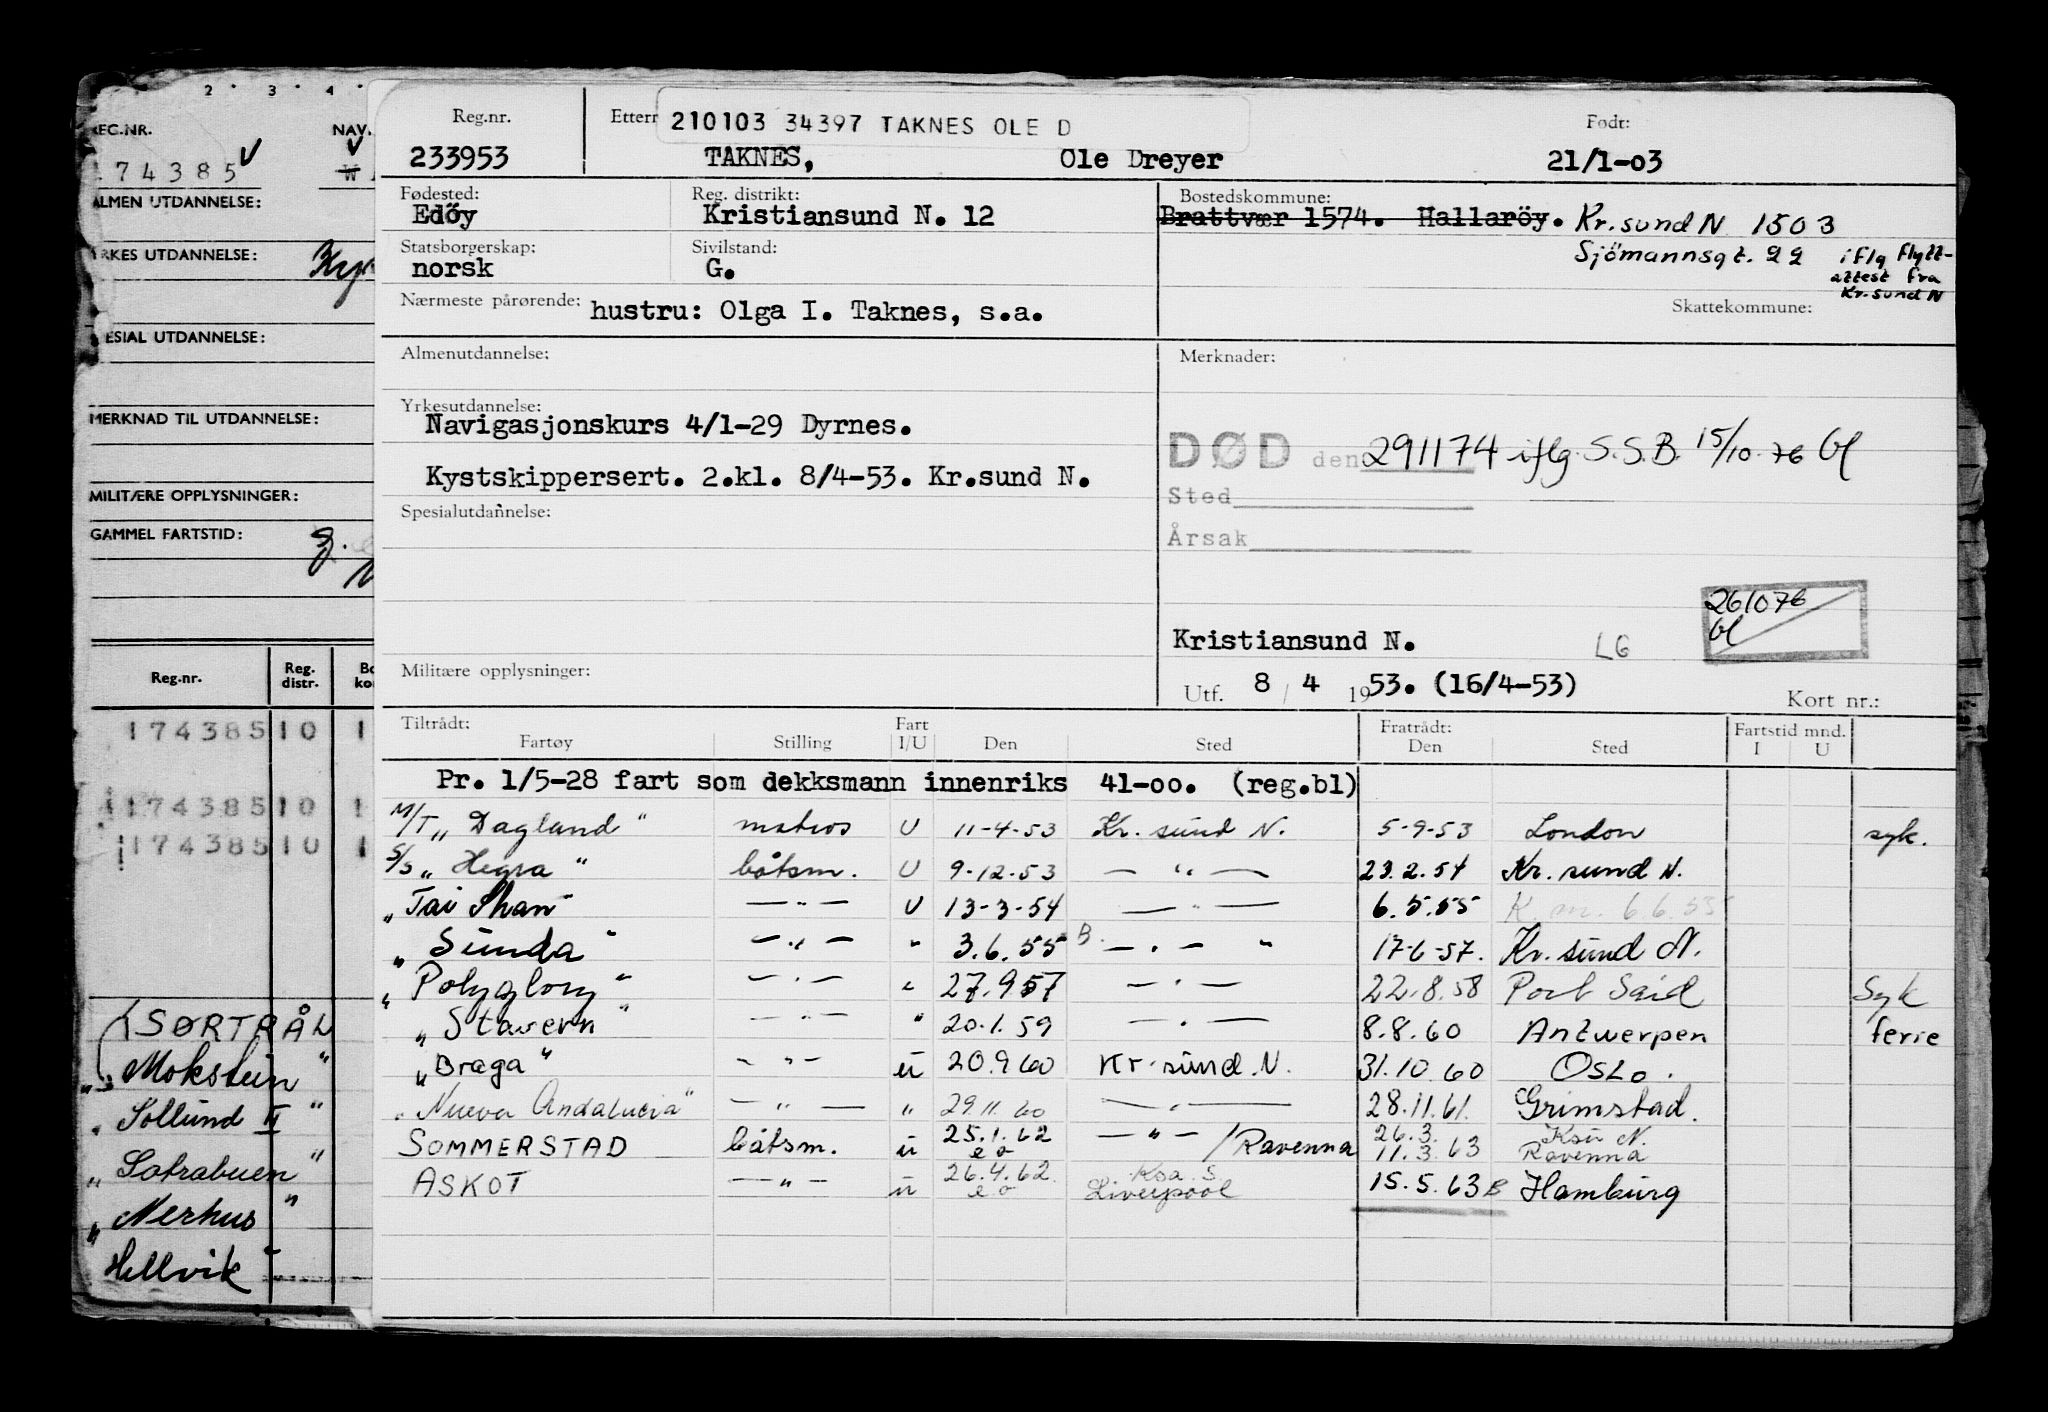 2 · 3 · 4 ·
REG.NR.
NAV.
174385
ALMEN UTDANNELSE:
YRKES UTDANNELSE:
SPESIAL UTDANNELSE:
MERKNAD TIL UTDANNELSE:
MILITÆRE OPPLYSNINGER:
GAMMEL FARTSTID:
Reg.nr. Reg. distr.
174385 10 1
174385 10 1
174385 10 1
SØRTRÅL
„ Mokstein "
„ Sollund II "
„ Sotrabuen "
„ Nerhus "
Hellvik
Reg.nr. Ettern Født:
210103 34397 TAKNES OLE D
233953 TAKNES, Ole Dreyer 21/1-03
Fødested: Reg. distrikt: Bostedskommune:
Edöy Kristiansund N. 12 Brattvær 1574. Hallaröy. Kr.sund N 1503
Sjömannsgt. 22 iflg flytt-
attest fra
Kr.sund N
Statsborgerskap: Sivilstand:
norsk G.
Nærmeste pårørende: hustru: Olga I. Taknes, s.a.
Skattekommune:
Almenutdannelse: Merknader:
Yrkesutdannelse:
Navigasjonskurs 4/1-29 Dyrnes.
DØD den 291174 iflg. S.S.B. 15/10-76
Kystskippersert. 2.kl. 8/4-53. Kr.sund N.
Sted
Spesialutdannelse:
Årsak
261076
Kristiansund N. LG
Militære opplysninger:
Utf. 8 / 4 1953. (16/4-53) Kort nr.:
Tiltrådt: Fart Fratrådt: Fartstid mnd.
Fartøy Stilling I/U Den Sted Den Sted I U
Pr. 1/5-28 fart som dekksmann innenriks 41-oo. (reg.bl)
M/T „ Dagland " matros U 11-4-53 Kr. sund N. 5-9-53 London syk.
S/S „ Hegra " båtsm. U 9-12-53 — " — 23.2.54 Kr. sund N.
„ Tai Shan " — " — U 13-3-54 — " — 6.5.55 K. m. 6.6.55
„ Sunda " — " — " 3.6.55 B. — " — " 17-6-57. Kr. sund N.
„ Polyglory " — " — " 27.957 — " — 22.8.58 Port Said Syk
„ Stavern " — " — " 20.1.59 — " — 8.8.60 Antwerpen ferie
„ Braga " — " — u 20.9.60 Kr. sund. N. 31.10.60 Oslo.
„ Nueva Andalucia " — " — " 29.11.60 — " — 28.11.61. Grimstad.
SOMMERSTAD båtsm. u 25.1.62 — " — / Ravenna 26.3. Ksu N.
e o 11.3.63 Ravenna
ASKOT — " — u 26.4.62. Ksa. S. 15.5.63 B Hamburg
e o Liverpool